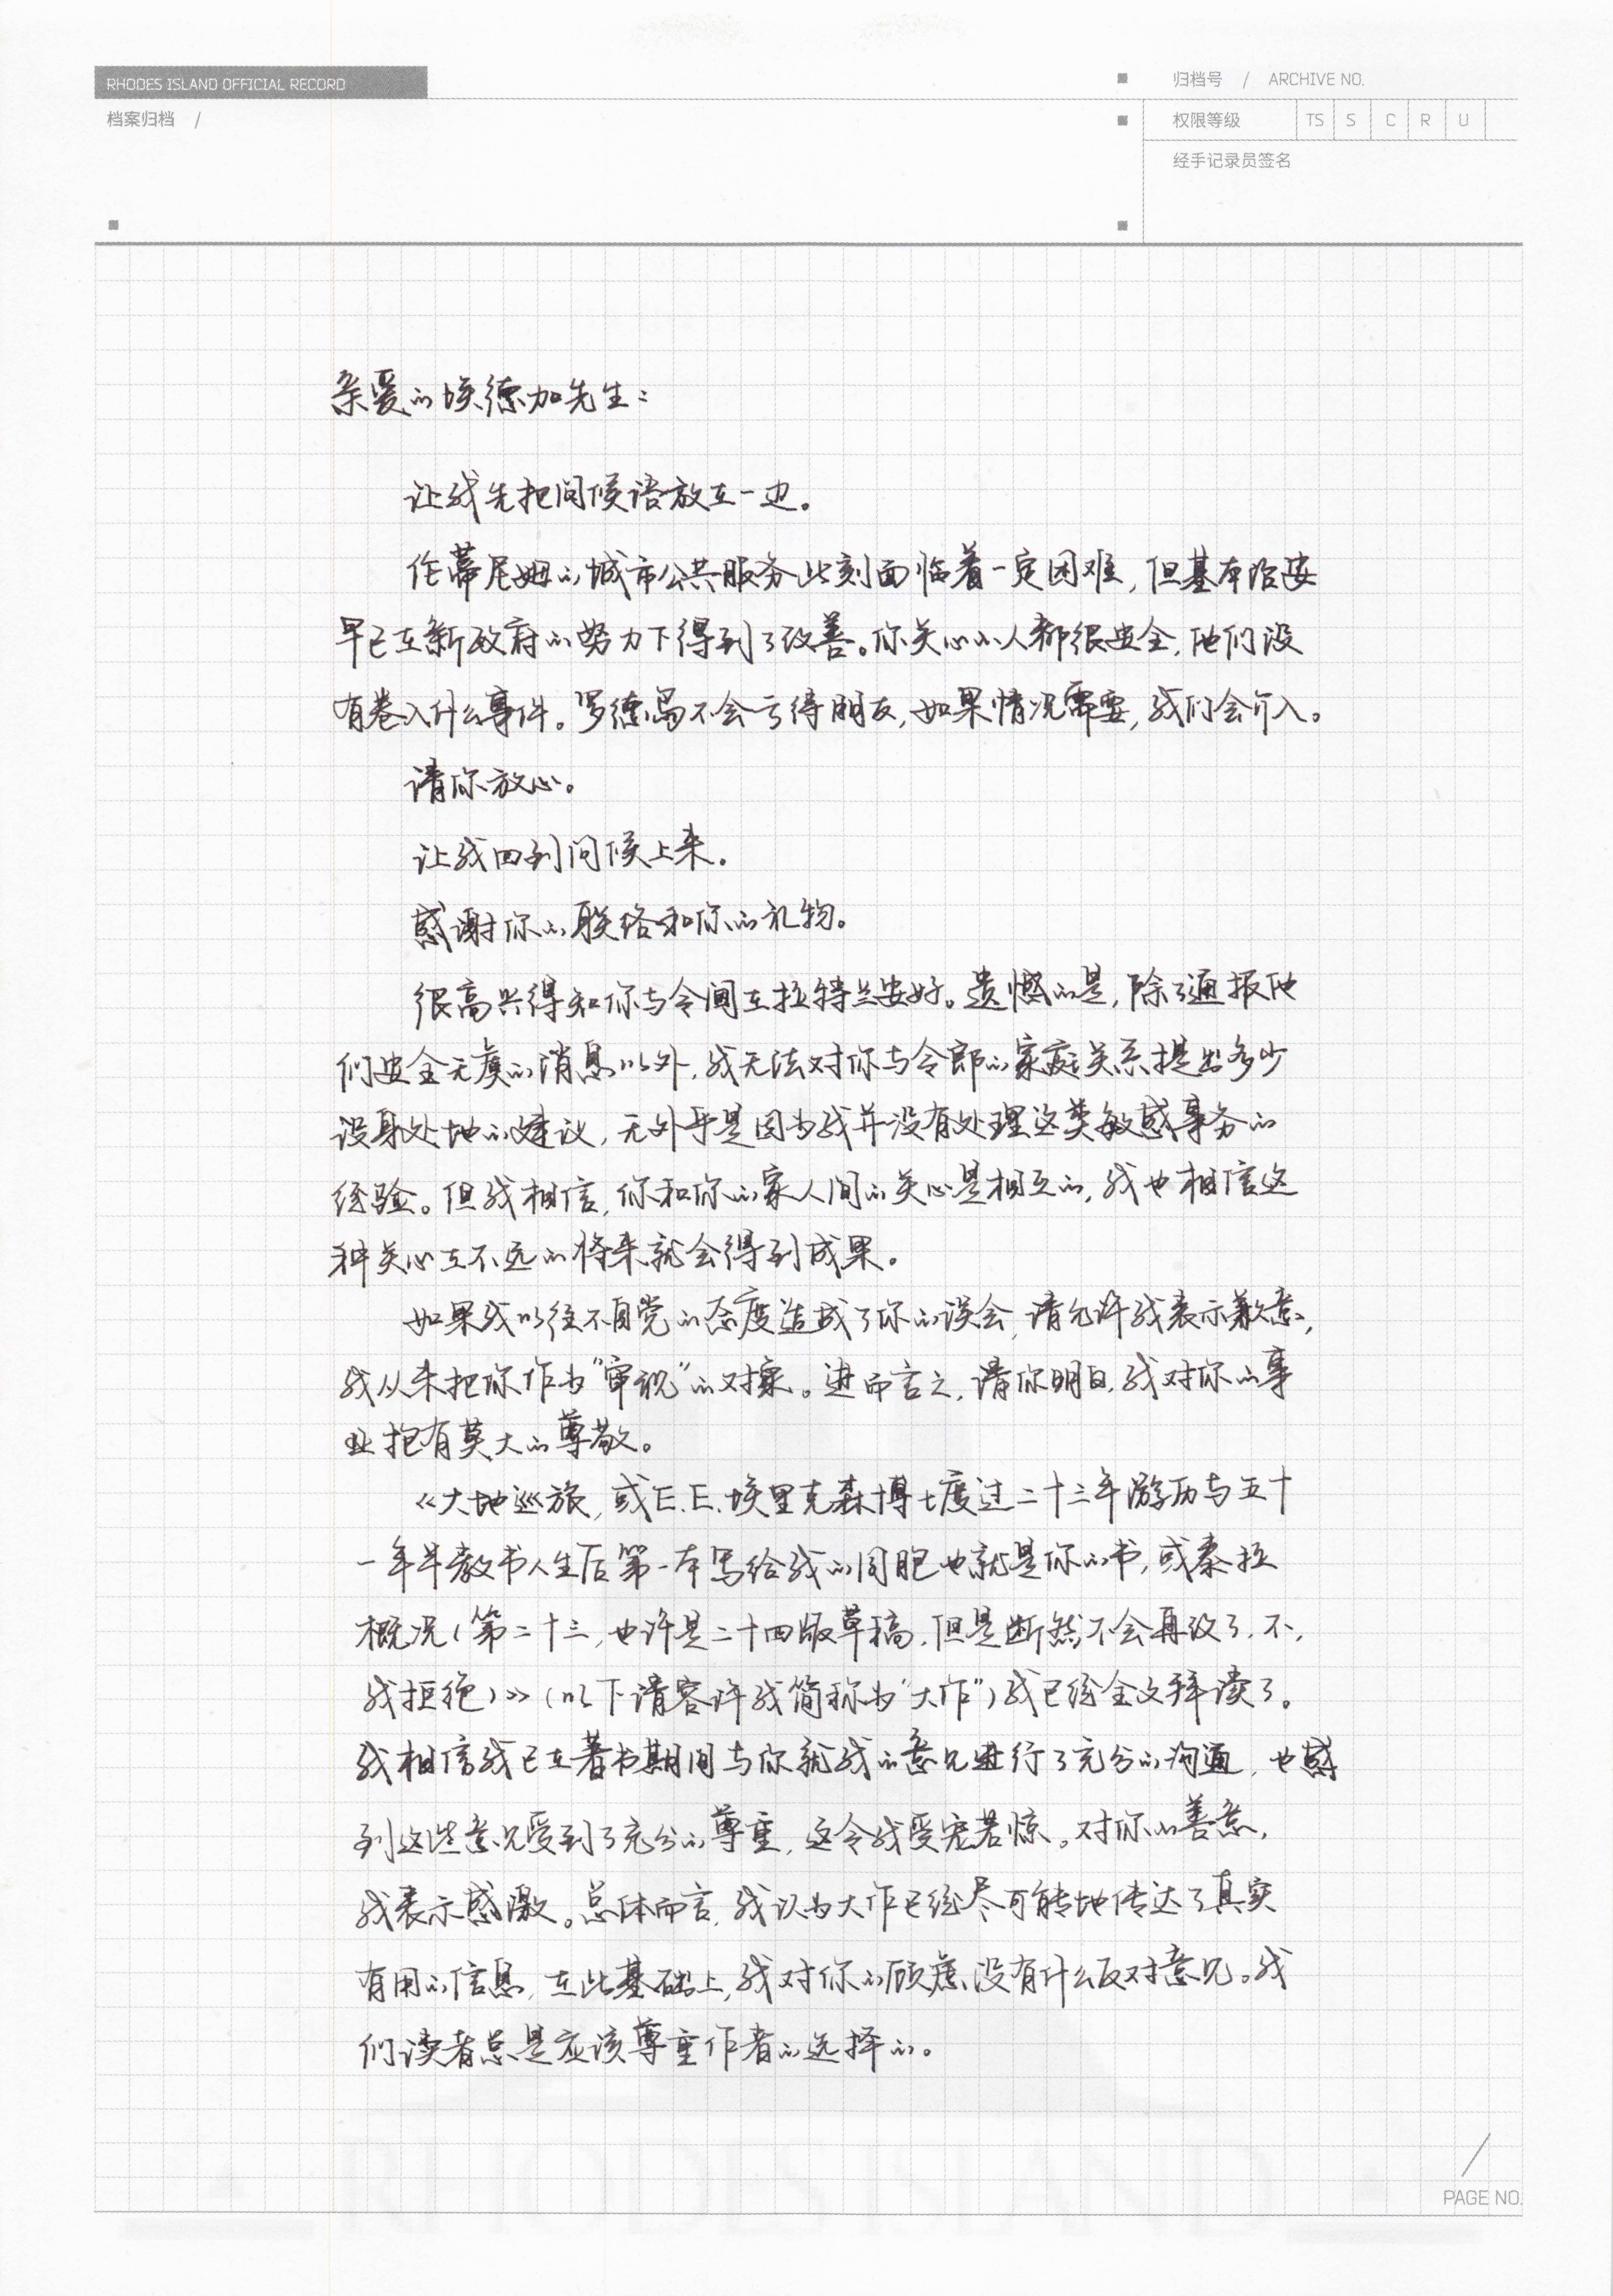 RHODES ISLAND OFFICIAL RECORD
归档号 / ARCHIVE NO.
档案归档 /
权限等级 TS S C R U
经手记录员签名
亲爱的埃德加先生：
让我先把问候语放在一边。
伦蒂尼姆的城市公共服务此刻面临着一定困难，但基本治安
早已在新政府的努力下得到了改善。你关心的人都很安全，他们没
有卷入什么事件。罗德岛不会亏待朋友，如果情况需要，我们会介入。
请你放心。
让我回到问候上来。
感谢你的联络和你的礼物。
很高兴得知你与令阃在拉特兰安好。遗憾的是，除了通报他
们安全无虞的消息以外，我无法对你与令郎的家庭关系提出多少
设身处地的建议，无外乎是因为我并没有处理这类敏感事务的
经验。但我相信，你和你的家人间的关心是相互的，我也相信这
种关心在不远的将来就会得到成果。
如果我以往不自觉的态度造成了你的误会，请允许我表示歉意，
我从未把你作为“审视”的对象。进而言之，请你明白，我对你的事
业抱有莫大的尊敬。
《大地巡旅，或E.E.埃里克森博士度过二十三年游历与五十
一年半教书人生后第一本写给我的同胞也就是你的书，或泰拉
概况（第二十三，也许是二十四版草稿，但是断然不会再改了，不，
我拒绝）》（以下请容许我简称为“大作”）我已经全文拜读了。
我相信我已在著书期间与你就我的意见进行了充分的沟通，也感
到这些意见受到了充分的尊重，这令我受宠若惊。对你的善意，
我表示感激。总体而言，我认为大作已经尽可能地传达了真实
有用的信息，在此基础上，我对你的顾虑没有什么反对意见。我
们读者总是应该尊重作者的选择的。
RHODES ISLAND
PAGE NO.